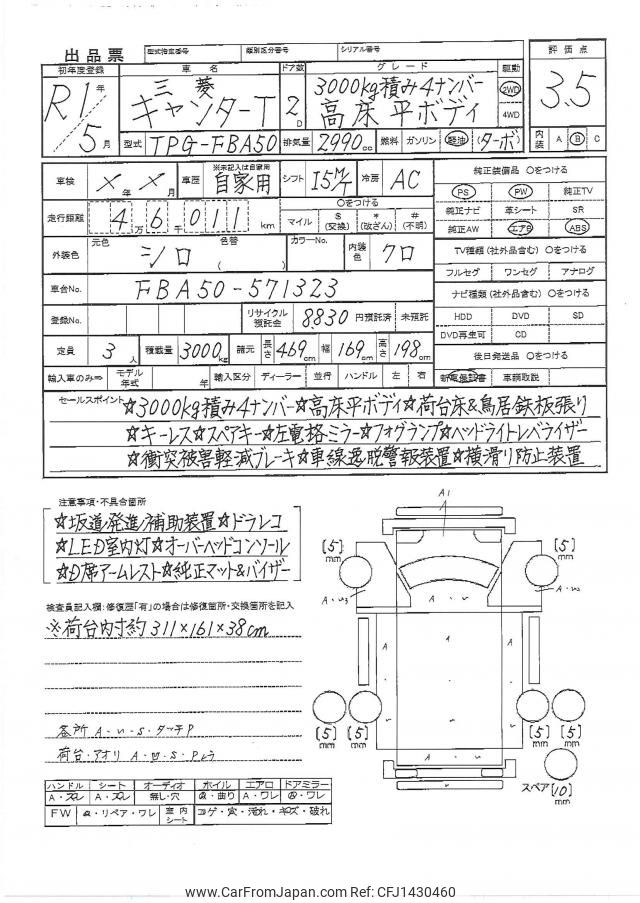 出品票 型式指定番号 類別区分番号 シリアル番号
初年度登録 車名 ドア数 グレード 駆動 評価点
R1年 三菱 2D 3000kg積み4ナンバー 2WD 3.5
5月 キャンターT 高床平ボディ 4WD
型式 TPG-FBA50 排気量 2990cc 燃料 ガソリン 軽油 (ターボ) 内装 A B C
車検 ×年×月 車歴 ※未記入は自家用 自家用 シフト I5M/T 冷房 AC
走行距離 4万6千011km ○をつける マイル $(交換) *(改ざん) #(不明)
外装色 元色 シロ 色替 ( ) カラーNo. 内装色 クロ
車台No. FBA50-571323
登録No. リサイクル預託金 8830円預託済 未預託
定員 3人 積載量 3000kg 諸元 長さ 469cm 幅 169cm 高さ 198cm
輸入車のみ⇒ モデル年式 年 輸入区分 ディーラー 並行 ハンドル 左 右
純正装備品 ○をつける
PS PW 純正TV
純正ナビ 革シート SR
純正AW エアB ABS
TV種類(社外品含む) ○をつける
フルセグ ワンセグ アナログ
ナビ種類(社外品含む) ○をつける
HDD DVD SD
DVD再生可 CD
後日発送品 ○をつける
新車保証書 車輌取説
セールスポイント ☆3000kg積み4ナンバー☆高床平ボディ☆荷台床&鳥居鉄板張り
☆キーレス☆スペアキー☆左電格ミラー☆フォグランプ☆ヘッドライトレベライザー
☆衝突被害軽減ブレーキ☆車線逸脱警報装置☆横滑り防止装置
注意事項・不具合箇所
☆坂道発進補助装置☆ドラレコ
☆LED室内灯☆オーバーヘッドコンソール
☆D席アームレスト☆純正マット&バイザー
検査員記入欄:修復歴「有」の場合は修復箇所・交換箇所を記入
※荷台内寸約311×161×38cm
各所 A・U・S・タッチP
荷台・アオリ A・U・S・P
ハンドル シート オーディオ ホイル エアロ ドアミラー
A・スレ A・スレ 無し・穴 曲り A・ワレ ワレ
FW リペア・ワレ 室内シート コゲ・穴・汚れ・キズ・破れ
A1
[5]mm [5]mm
A A
A
[5]mm [5]mm [5]mm [5]mm
スペア [10]mm
www.CarFromJapan.com Ref: CFJ1430460